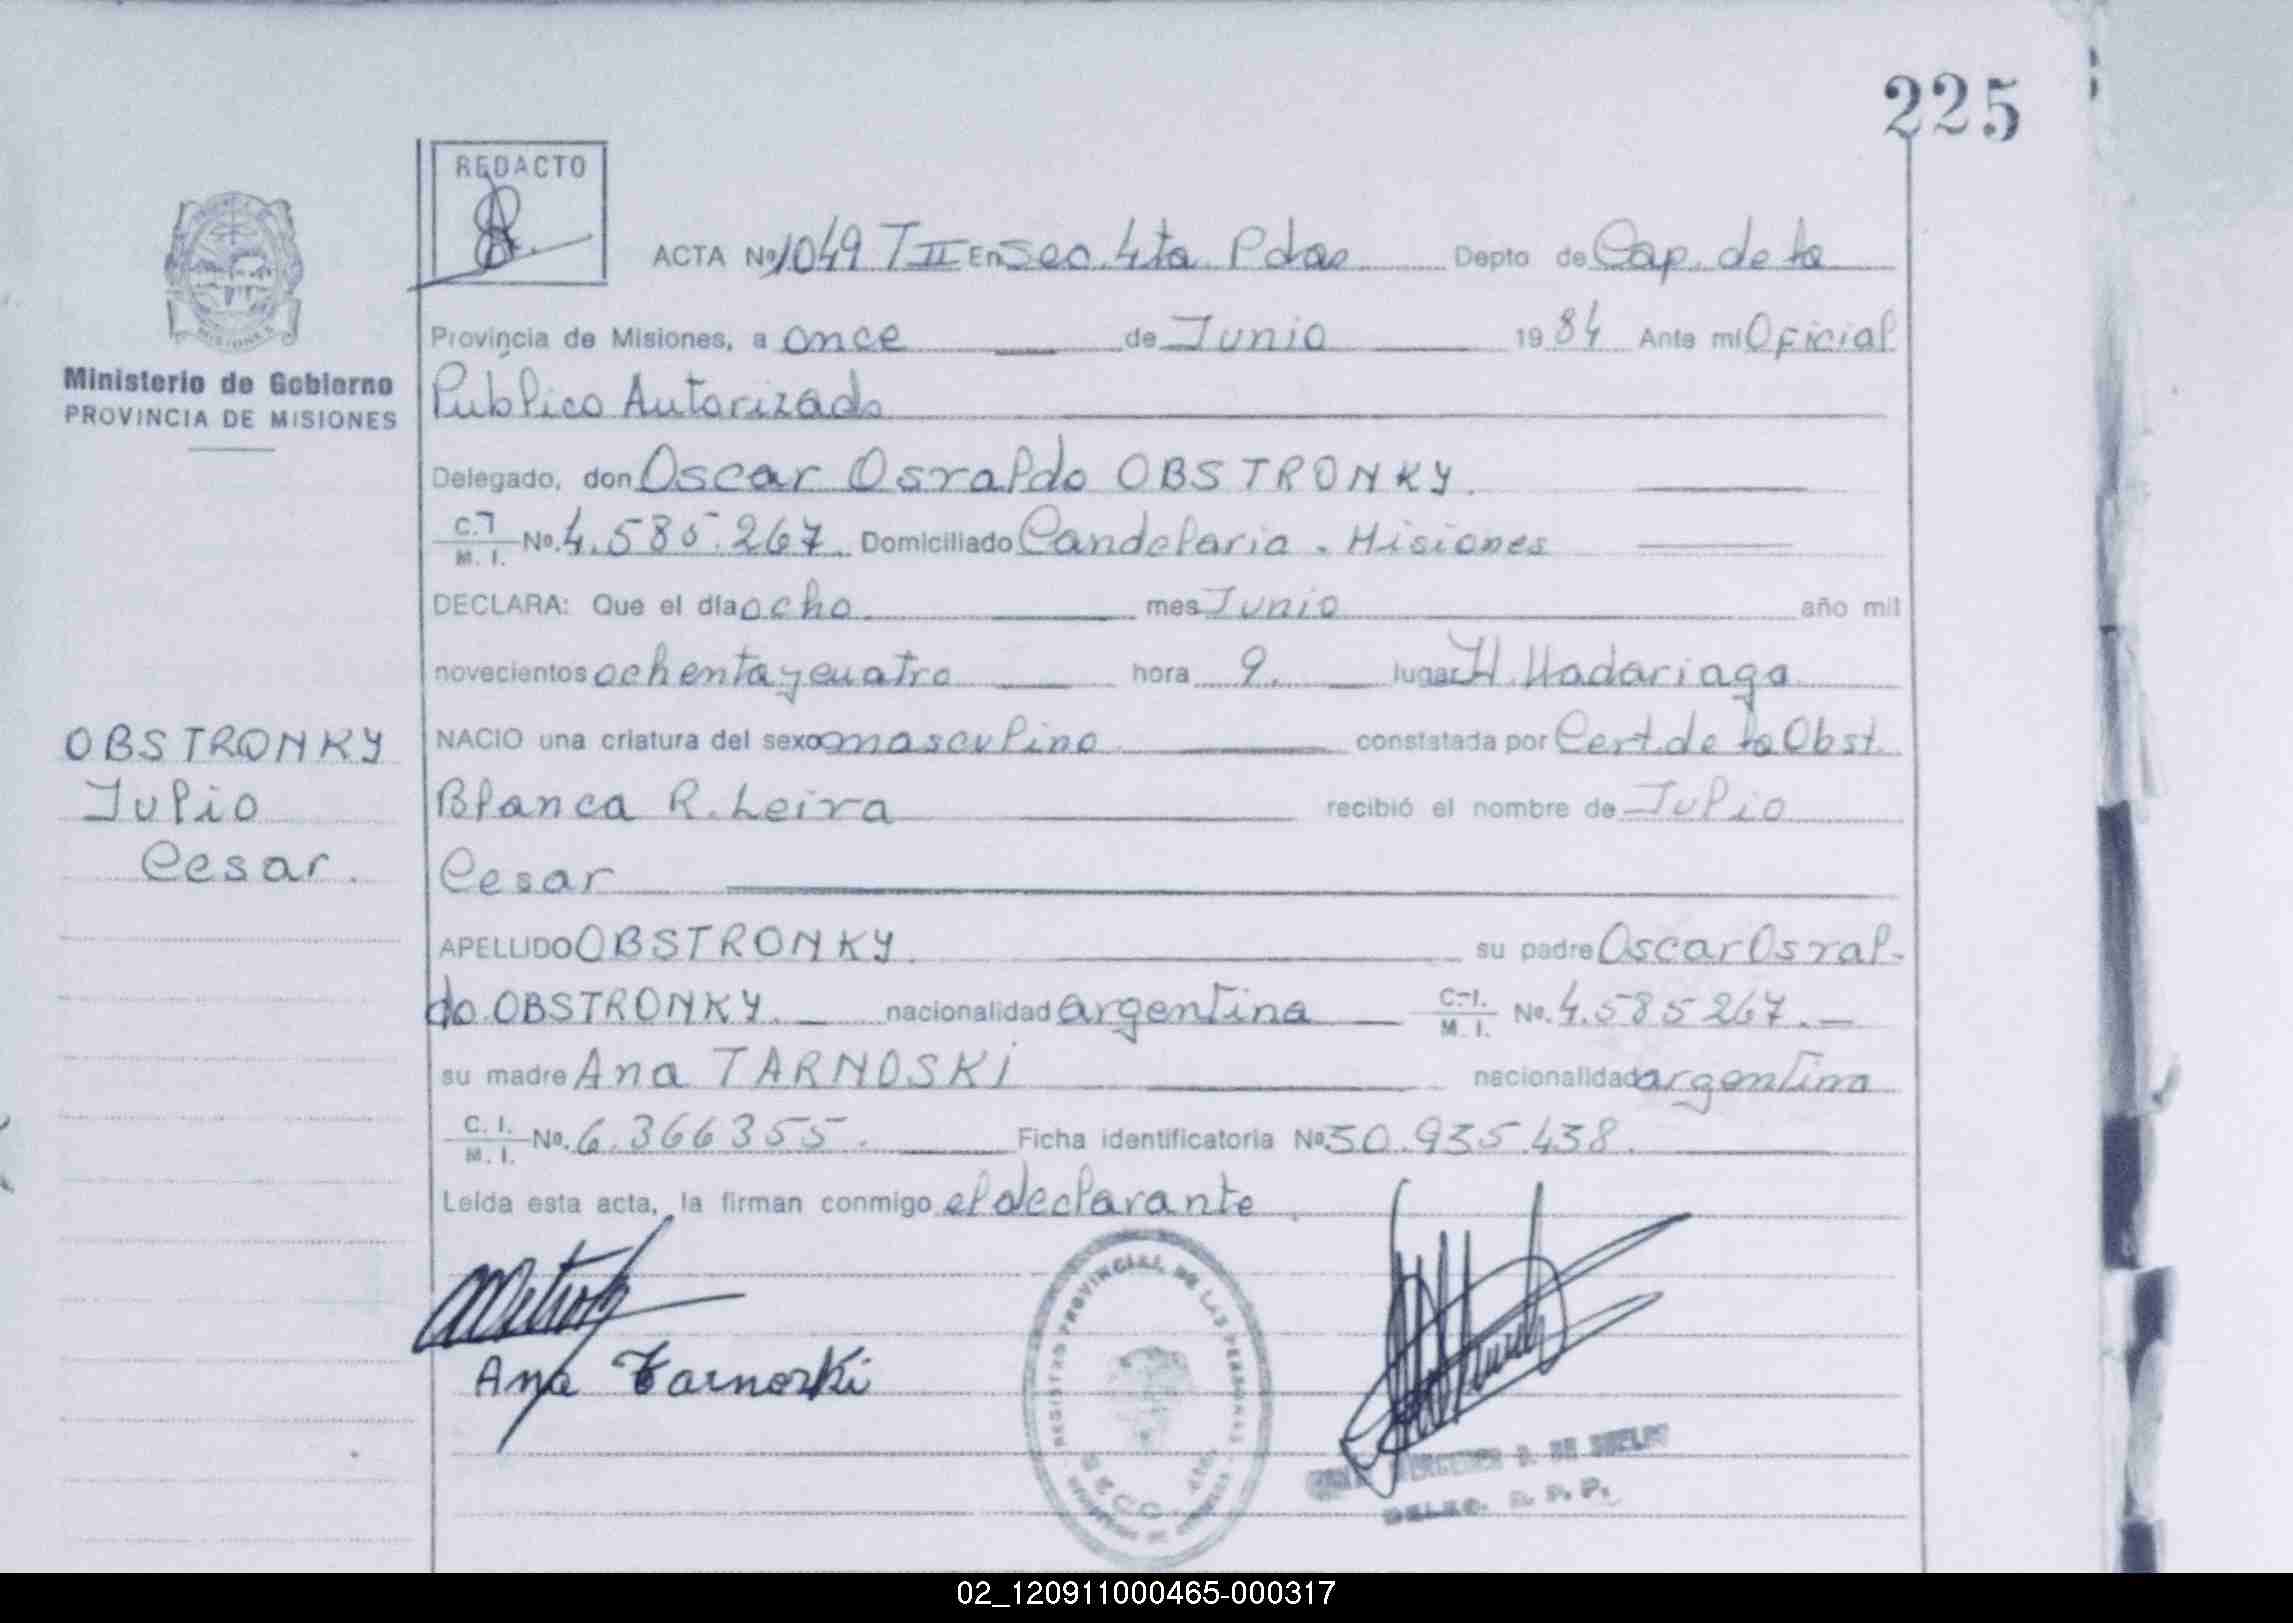 225
REDACTO
ACTA Nº 1049 T II En Sec. 4ta Pdas Depto de Cap. de la
Provincia de Misiones, a once de Junio 1984 Ante mi Oficial
Público Autorizado
Ministerio de Gobierno
PROVINCIA DE MISIONES
MISIONES
Delegado, don Oscar Osvaldo OBSTRONKY.
C.I. M. I. No. 4.585.267. Domiciliado Candelaria. Misiones
DECLARA: Que el día ocho mes Junio año mil
novecientos ochenta y cuatro hora 9. lugar H. Madariaga
NACIO una criatura del sexo masculino constatada por Cert. de la Obst.
Blanca R. Leiva recibió el nombre de Julio
Cesar
OBSTRONKY
Julio
Cesar.
APELLIDO OBSTRONKY. su padre Oscar Osval-
do OBSTRONKY. nacionalidad argentina C.I. M. I. No. 4.585267.
su madre Ana TARNOSKI nacionalidad argentina
C. I. M. I. No. 6.366355. Ficha identificatoria No 30.935.438.
Leída esta acta, la firman conmigo el declarante
Ana Tarnoski
REGISTRO PROVINCIAL DE LAS PERSONAS
SECC.
DELEG. R. P. P.
02_120911000465-000317